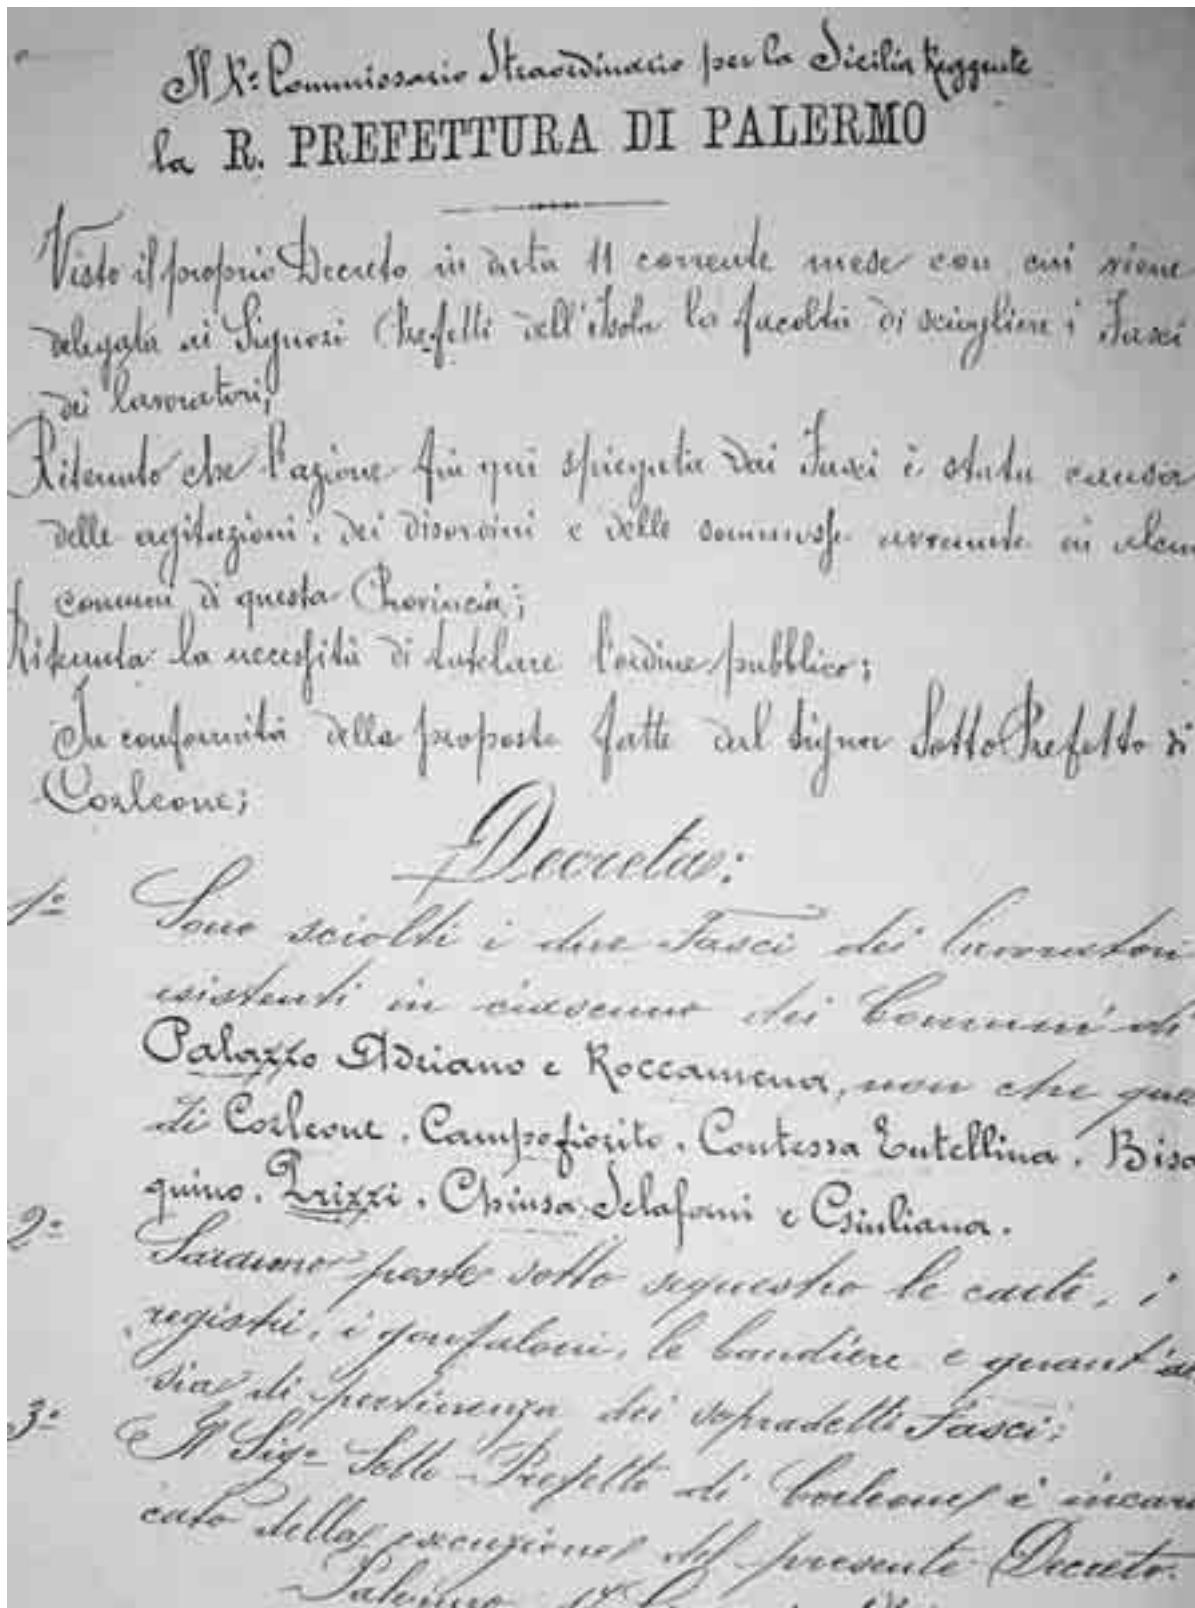 Il R.º Commissario Straordinario per la Sicilia Reggente
la R. PREFETTURA DI PALERMO
Visto il proprio Decreto in data 11 corrente mese con cui viene
delegata ai Signori Prefetti dell'Isola la facoltà di sciogliere i Fasci
dei lavoratori;
Ritenuto che l'azione fin qui spiegata dai Fasci è stata causa
delle agitazioni, dei disordini e delle sommosse avvenute in alcuni
comuni di questa Provincia;
Ritenuta la necessità di tutelare l'ordine pubblico;
In conformità delle proposte fatte dal Signor Sotto Prefetto di
Corleone;
Decreta:
1º Sono sciolti i due Fasci dei lavoratori
esistenti in ciascuno dei Comuni di
Palazzo Adriano e Roccamena, non che que
di Corleone, Campofiorito, Contessa Entellina, Bisa
quino, Prizzi, Chiusa Sclafani e Giuliana.
2º Saranno poste sotto sequestro le carte, i
registri, i gonfaloni, le bandiere e quant'al
sia di pertinenza dei sopradetti Fasci;
3º Il Sigr Sotto-Prefetto di Corleone è incari
cato della esecuzione del presente Decreto.
Palermo